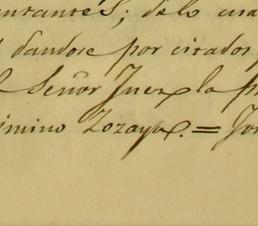 untantes; de lo cua
dandose por citados
Señor Juez la p
imino Zozaya. = Jo